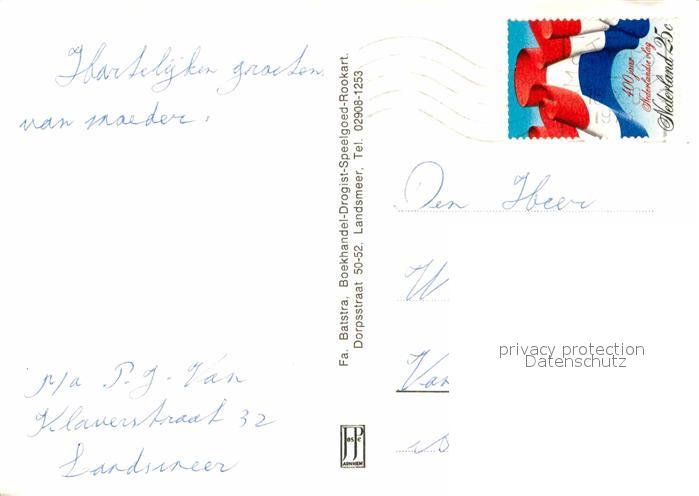 Hartelijken groeten
van moeder.
p/a P. J. Ván
Klaverstraat 32
Landsmeer
Fa. Batstra, Boekhandel-Drogist-Speelgoed-Rookart.
Dorpsstraat 50-52, Landsmeer, Tel. 02908-1253
JosPe
ARNHEM
400 jaar
Nederlandse vlag
Nederland 25c
Den Heer
W
Van
privacy protection
Datenschutz